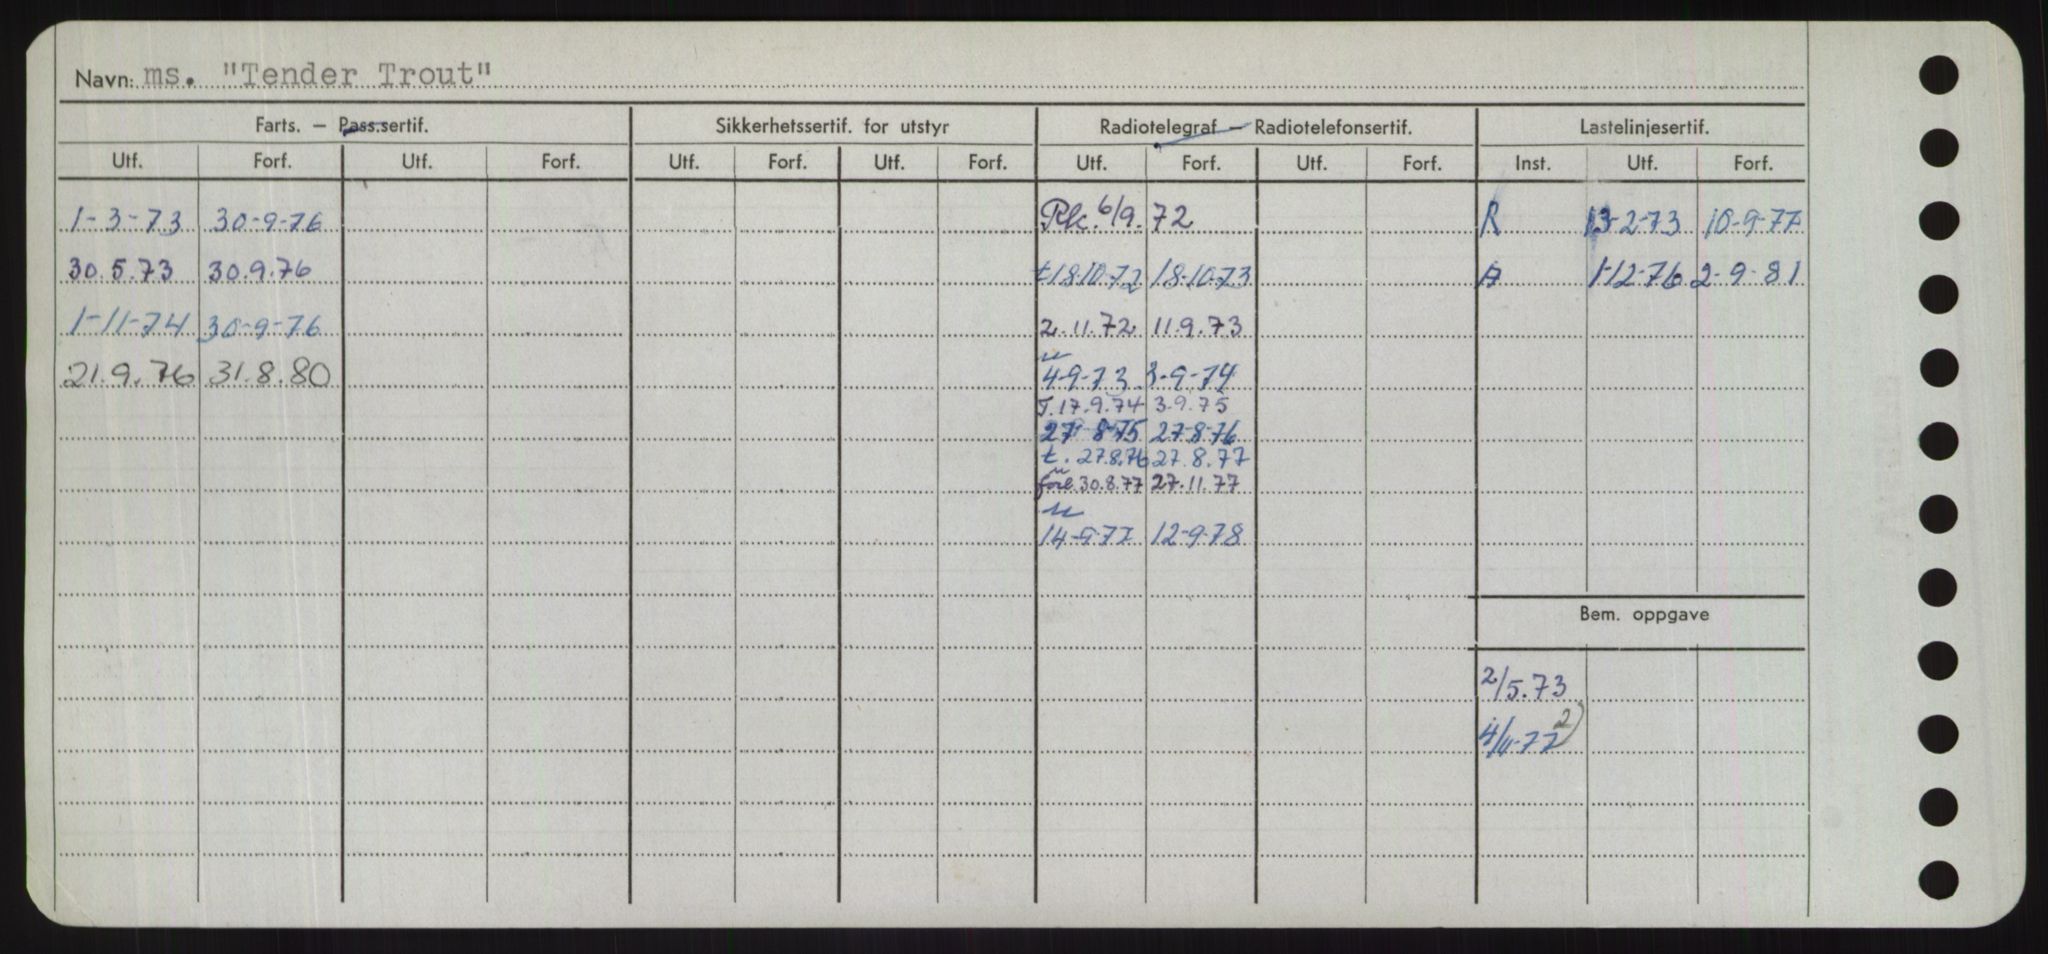 Navn: ms. "Tender Trout"
Farts. – Pass.sertif. Sikkerhetssertif. for utstyr Radiotelegraf – Radiotelefonsertif. Lastelinjesertif.
Utf. Forf. Utf. Forf. Utf. Forf. Utf. Forf. Utf. Forf. Utf. Forf. Inst. Utf. Forf.
1-3-73 30-9-76 Rk. 6/9. 72 R 13-2-73 10-9-77
30.5.73 30.9.76 t 18-10-72 18-10-73 A 1-12-76 2-9-81
1-11-74 30-9-76 2.11.72 11.9.73
21.9.76 31.8.80 4-9-73 3-9-74
T. 17.9.74 3.9.75
27-8-75 27-8-76
t. 27.8.76 27.8.77
forl. 30.8.77 27.11.77
14-9-77 12-9-78
Bem. oppgave
2/5.73
4/11-77 2)